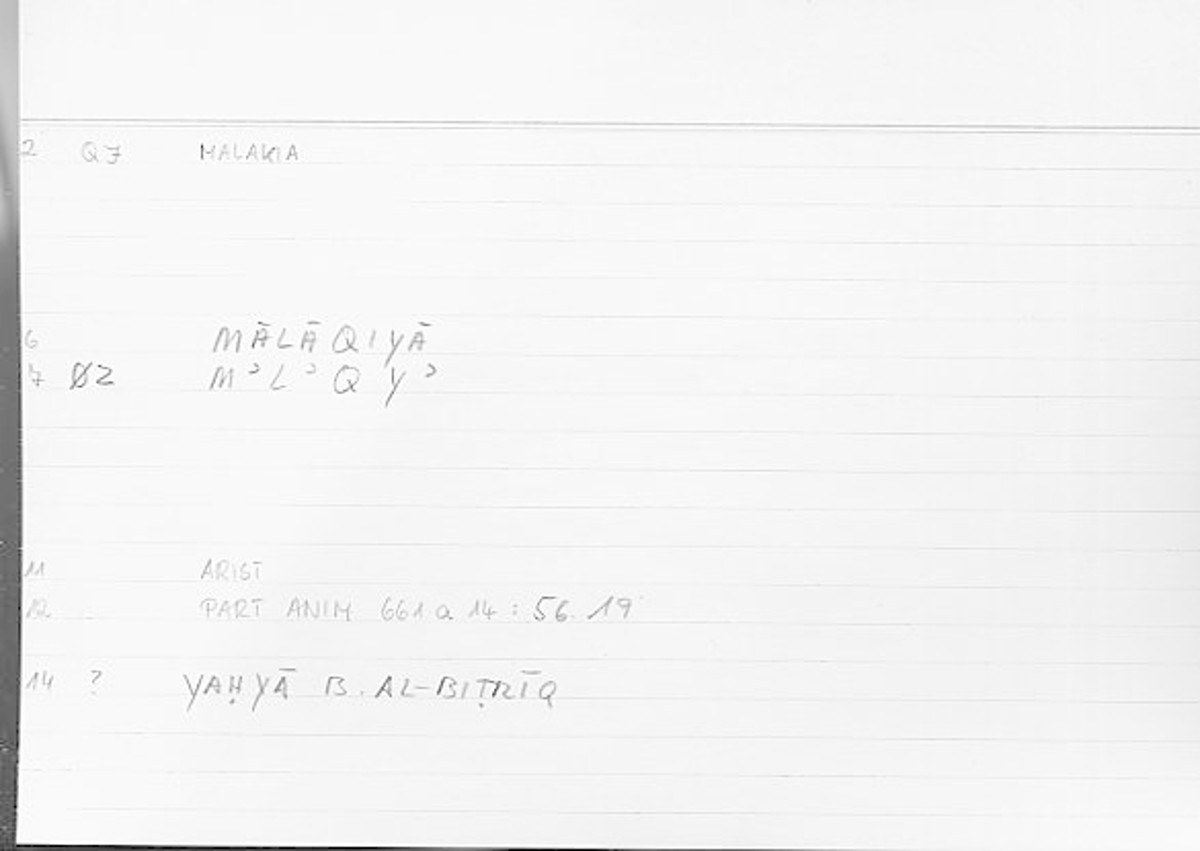 2 Q7 MALAKIA
6 MĀLĀQIYĀ
7 Ø2 MʾLʾQYʾ
11 ARIST
12 PART ANIM 661 a 14 : 56.19
14 ? YAḤYĀ B. AL-BIṬRĪQ